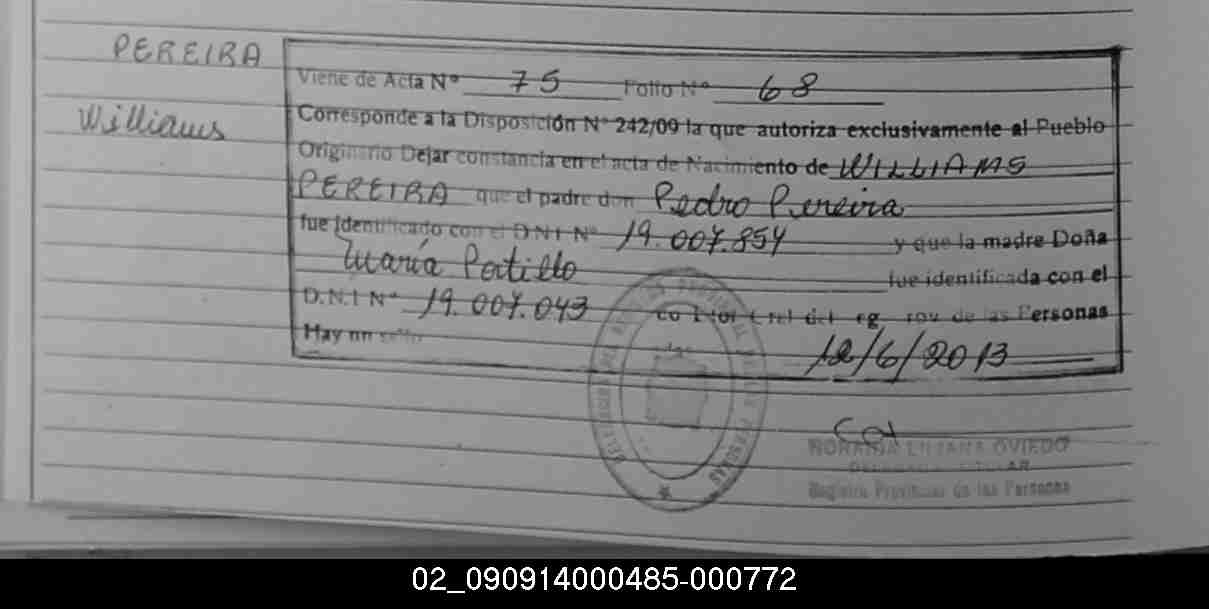 PEREIRA
Williams
Viene de Acta Nº 75 Folio Nº 68
Corresponde a la Disposición Nº 242/09 la que autoriza exclusivamente al Pueblo
Originario Dejar constancia en el acta de Nacimiento de WILLIAMS
PEREIRA que el padre don Pedro Pereira
fue identificado con el D.N.I Nº 19.007.854 y que la madre Doña
María Patillo fue identificada con el
D.N.I Nº 19.007.043 de las Personas
Hay un sello
12/6/2013
OVIEDO
Registro Provincial de las Personas
02_090914000485-000772